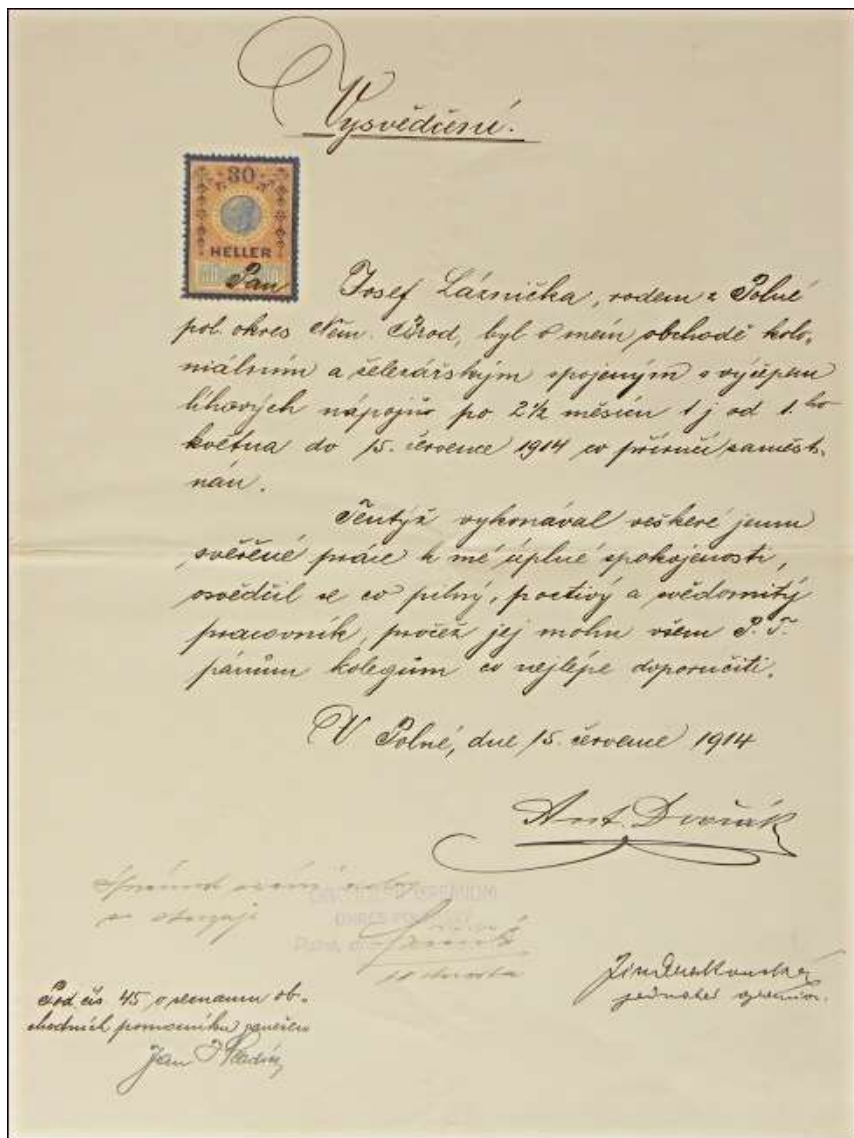 Vysvědčení.
30
HELLER
Pan Josef Láznička, rodem z Polné
pol. okres Něm. Brod, byl v mém obchodě kolo-
niálním a železářským spojeným s výčepem
lihových nápojův po 2½ měsíců t j od 1.ho
května do 15. července 1914 co příručí zaměst-
nán.
Tentýž vykonával veškeré jemu
svěřené práce k mé úplné spokojenosti,
osvědčil se co pilný, poctivý a svědomitý
pracovník, pročež jej mohu všem P. T.
pánům kolegům co nejlépe doporučiti.
V Polné, dne 15. července 1914
Ant. Dvořák
GREMIUM
OKRES
starosta
jednatel gremia.
Pod čís 45 v seznamu ob-
chodních pomocníků zanešen
Jan